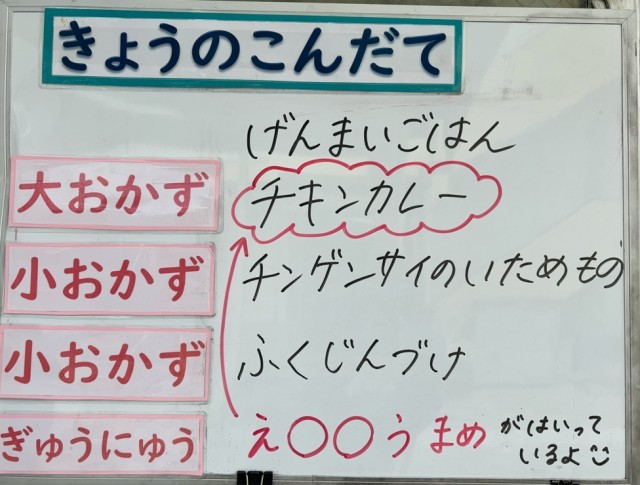 きょうのこんだて
げんまいごはん
大おかず チキンカレー
小おかず チンゲンサイのいためもの
小おかず ふくじんづけ
ぎゅうにゅう え〇〇う まめ がはいって
いるよ